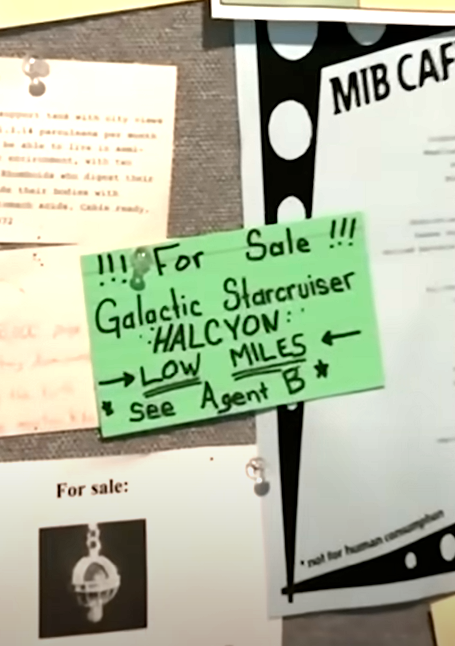 MIB CAF
support tank with city views
per month
be able to live in semi-
environment, with two
Rhomboids who digest their
their bodies with
stomach acids. Cable ready.
!!! For Sale !!!
Galactic Starcruiser
HALCYON
→ LOW MILES ←
* See Agent B *
For sale:
*not for human consumption